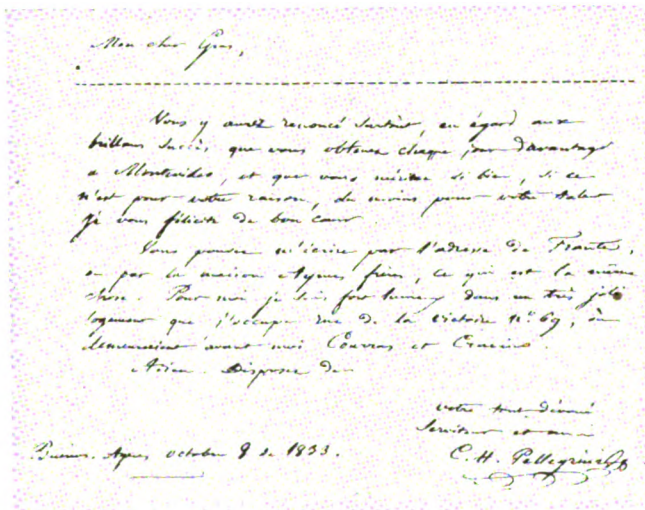 Mon cher Gras,
Vous y aurez renoncé surtout, eu égard aux
brillans succès que vous obtenez chaque jour davantage
a Montevideo, et que vous méritez si bien, si ce
n'est pour votre raison, du moins pour votre talent
je vous félicite de bon cœur
Vous pouvez m'écrire par l'adresse de
ou par la maison Aymes frères, ce qui est la même
chose. Pour moi je suis fort dans un très joli
logement que j'occupe rue de la victoire nº 69, où
demeuraient avant moi et
Adieu. Disposez de
votre tout dévoué
Serviteur et ami
Buenos-Ayres octobre 9 de 1833.
C. H. Pellegrini